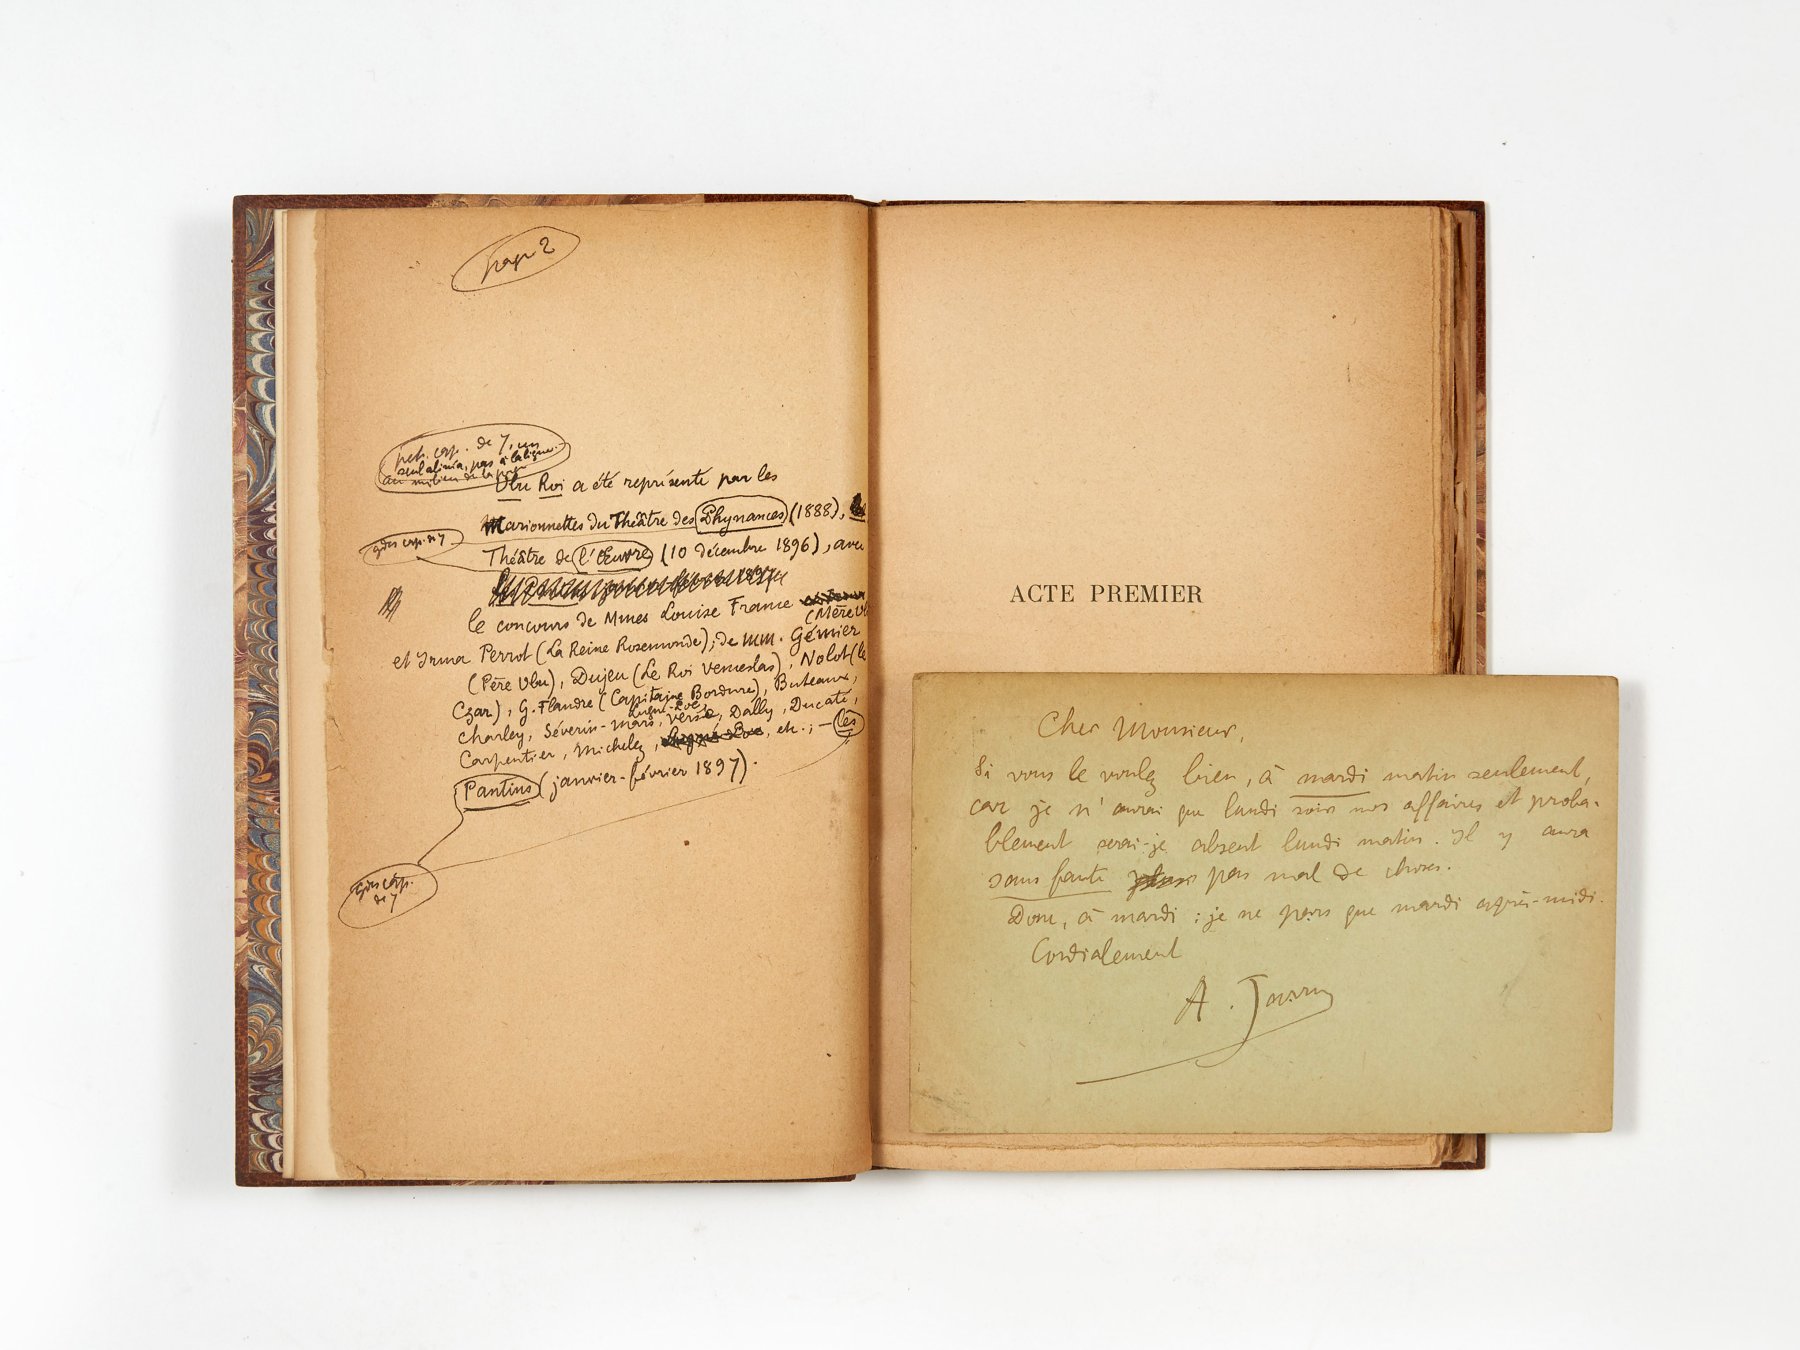 page 2
pet. cap. de 7, un
seul alinéa, pas à la ligne.
au milieu de la page
Ubu Roi a été représenté par les
Marionnettes du Théâtre des Phynances (1888), le
gdes cap. de 7
Théâtre de l'Œuvre (10 décembre 1896), avec
le concours de Mmes Louise France (Mère Ub
et Irma Perrot (La Reine Rosemonde); de MM. Gémier
(Père Ubu), Dujeu (Le Roi Venceslas), Nolot (le
Czar), G. Flandre (Capitaine Bordure), Buteaux,
Charley, Séverin-Mars, Lugné-Poe, Verse, Dally, Ducaté,
Carpentier, Michelez, etc.; — les
Pantins (janvier-février 1897).
gdes cap.
de 7
ACTE PREMIER
Cher Monsieur,
Si vous le voulez bien, à mardi matin seulement,
car je n'aurai que lundi soir mes affaires et proba-
blement serai-je absent lundi matin. Il y aura
sans faute pas mal de choses.
Donc, à mardi : je ne pars que mardi après-midi.
Cordialement
A. Jarry